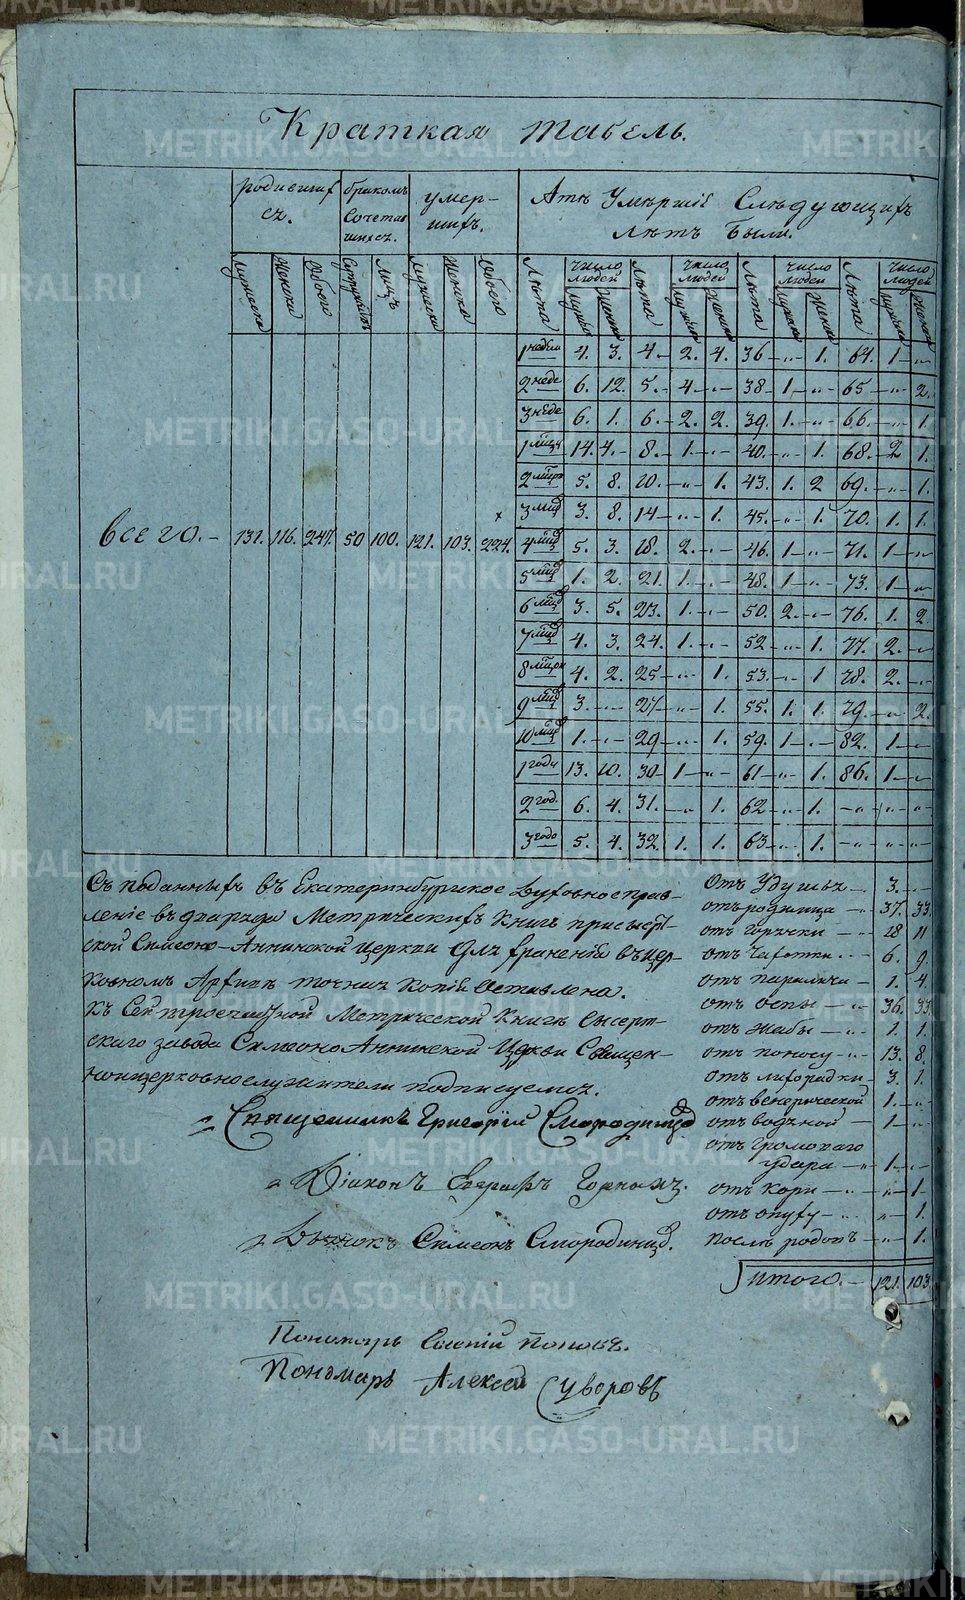 Краткая табель.
родившихся.
бракомъ сочетавшихся.
умерших.
Лѣтъ умершіе слѣдующихъ лѣтъ были.
Мужеска Женска Обоего Супружествъ Лицъ Мужеска Женска Обоего
Лѣта число людей Лѣта число людей Лѣта число людей Лѣта число людей
Мужска Женска Мужска Женска Мужска Женска Мужска Женска
1 неде 4. 3. 4. 2. 4. 36 „ 1. 64. 1 „
2 неде 6. 12. 5. 4 „ 38. 1 „ 65 „ 2.
3 неде 6. 1. 6. 2. 2. 39. 1. „ 66. „ 1.
1 мца 14. 4. 8. 1 „ 40. „ 1. 68. 2 1.
2 мца 5. 8. 10. „ 1. 43. 1. 2 69. „ 1.
3 мца 3. 8. 14 „ 1. 45. „ 1. 70. 1. 1.
Всего. 131. 116. 247. 50 100. 121. 103. 224.
4 мца 5. 3. 18. 2. „ 46. 1 „ 71. 1 „
5 мца 1. 2. 21. 1. „ 48. 1 „ 73. 1 „
6 мца 3. 5. 23. 1. „ 50. 2. „ 76. 1. 2
7 мца 4. 3. 24. 1. „ 52 „ 1. 77. 2. „
8 мца 4. 2. 25 „ 1. 53. „ 1 78. 2. „
9 мца 3. „ 27 „ 1. 55. 1. 1. 79. „ 2.
10 мца 1. „ 29 „ 1. 59. 1 „ 82. 1 „
1 года 13. 10. 30 1 „ 61 „ 1. 86. 1 „
2 год. 6. 4. 31. „ 1. 62 „ 1. „ „ „
3 года 5. 4. 32. 1. 1. 63 „ 1. „ „ „
Съ поданныхъ въ Екатеринбургское Духовное прав-
леніе въ два ряда Метрическихъ Книгъ при Сысерт-
ской Симеоно-Аннинской церкви для храненія въ цер-
ковномъ Архивѣ точная Копія Оставлена.
Къ Сей троечастной Метрической Книгѣ Сысерт-
скаго завода Симеоно Аннинской Церкви Священ-
ноицерковнослужители подписуемся.
Священникъ Григорій Смородинцов
Діаконъ Евграфъ Горных.
Дьячокъ Симеонъ Смородинцов.
Пономарь Евгеній Поповъ.
Пономарь Алексей Суворовъ
отъ Удушья 3. „
отъ родимца 37. 33.
отъ горячки 18 11
отъ чахотки 6. 9.
отъ паралича 1. 4.
отъ оспы 36. 33
отъ жабы 1. 1.
отъ поносу 13. 8.
отъ лихорадки 3. 1.
отъ венерической 1. „
отъ водяной 1 „
отъ громоваго
удара 1 „
отъ кори „ 1.
отъ опуху „ 1.
послѣ родовъ „ 1.
Итого. 121. 103
METRIKI.GASO-URAL.RU